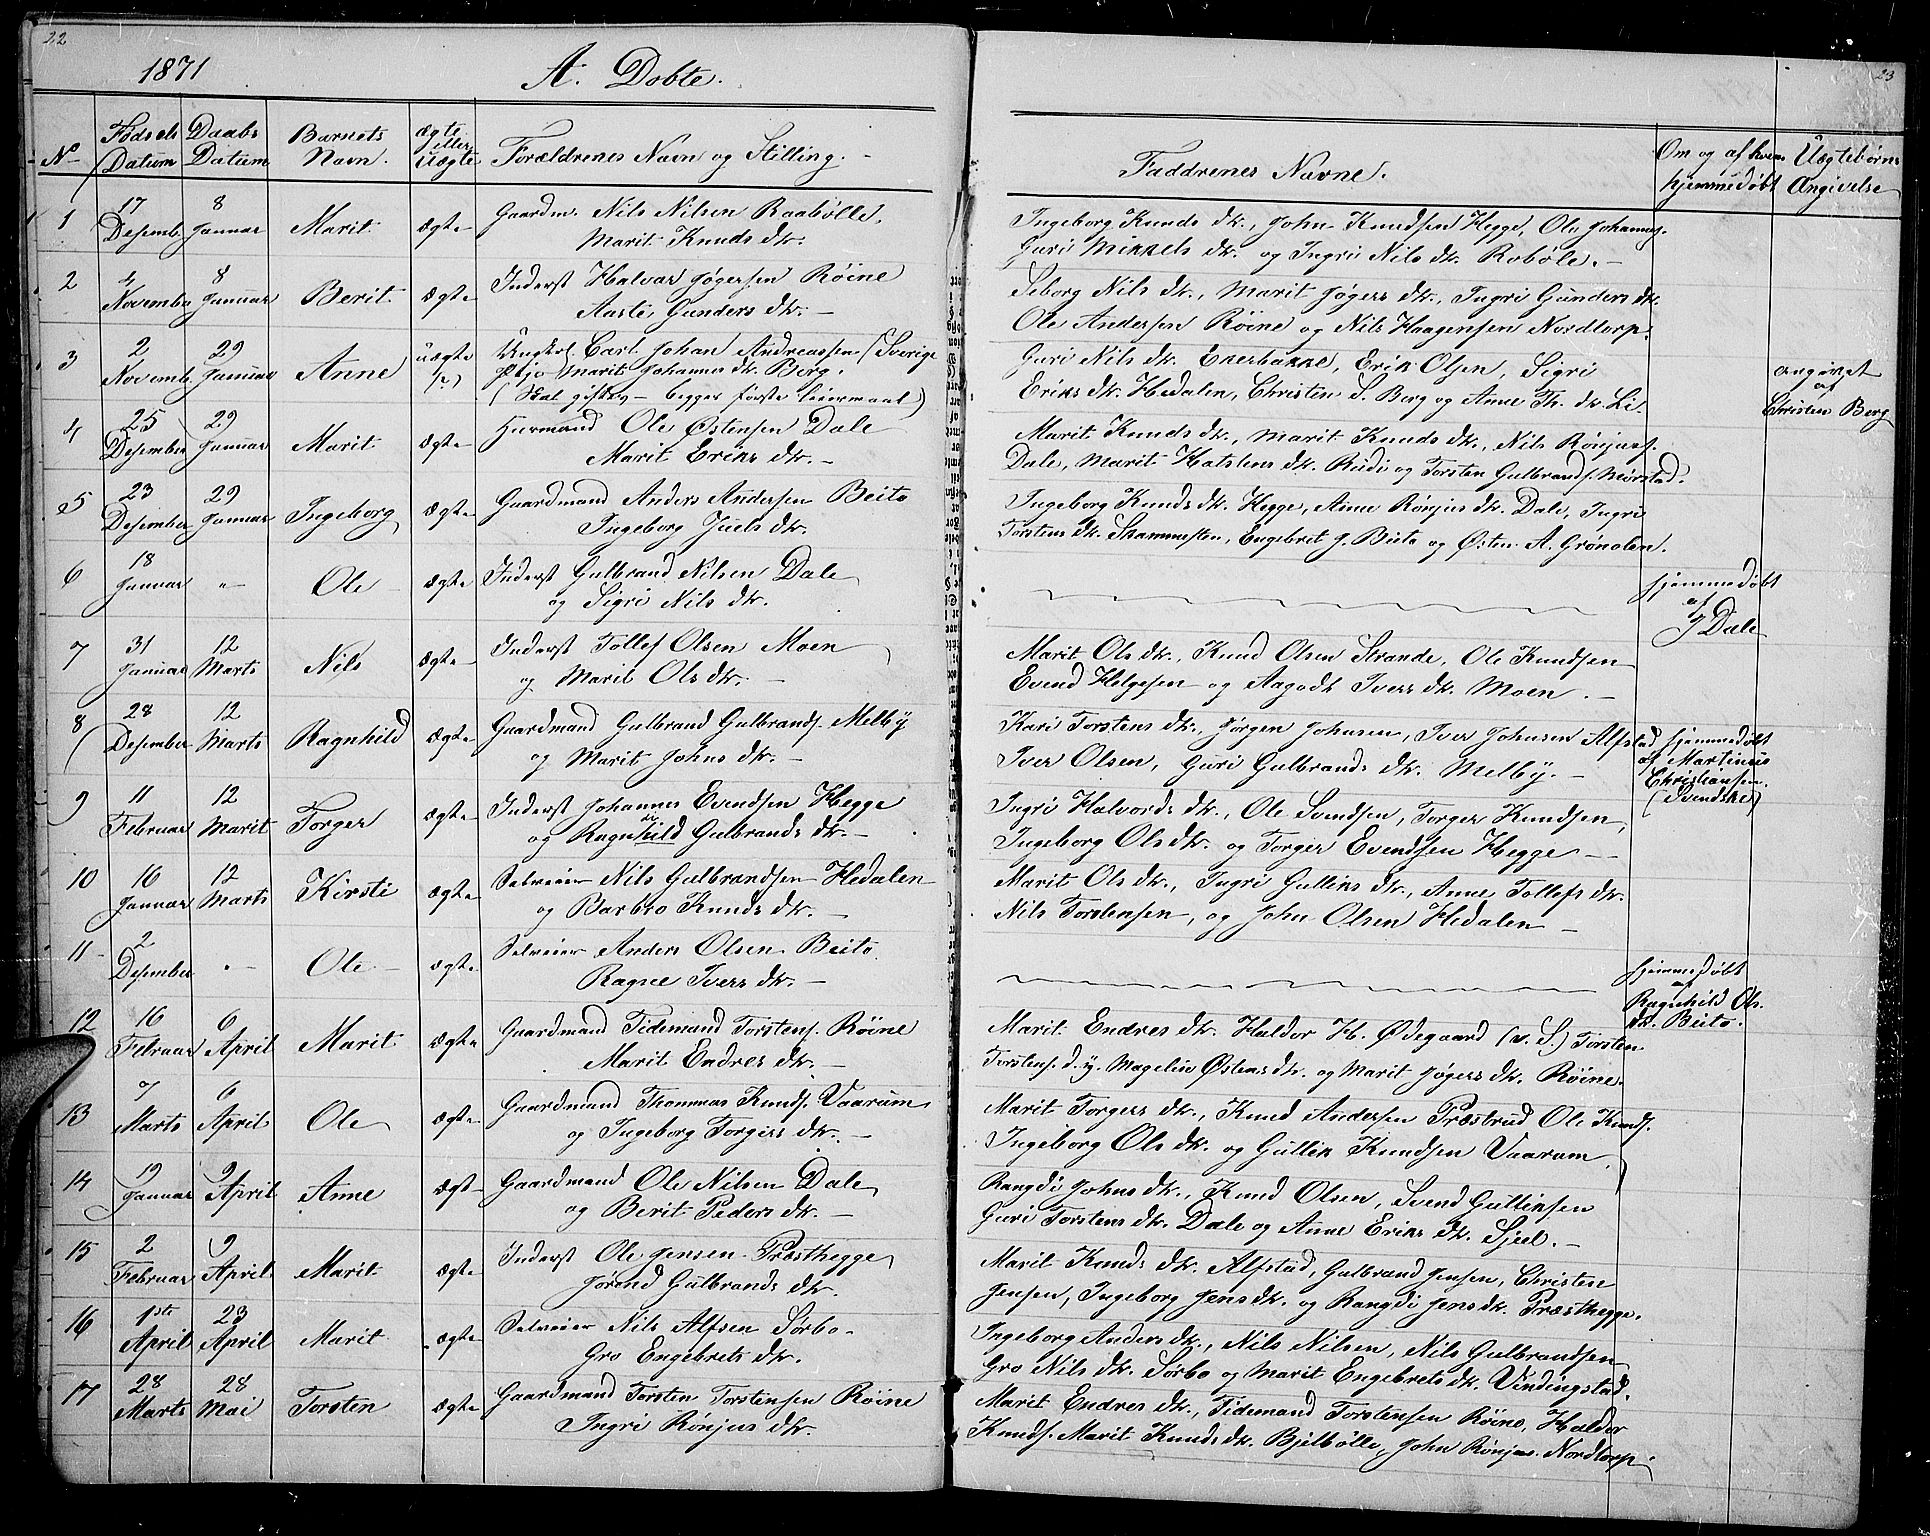 22
1871
A. Døbte.
No
Fødsels Datum
Daabs Datum
Barnets Navn.
ægte eller uægte
Forældrenes Navn og Stilling. -
1 17 Desemb. 8 Januar Marit ægte Gaardm. Nils Nilsen Raabølle,
Marit Knuds dtr.
2 4 Novembe 8 Januar Berit ægte Inderst Halvar Jøgersen Røine
Aaste Gunders dtr. -
3 2 Novemb. 29 Januar Anne uægte Ungkal. Carl Johan Andreassen (Sverige
Pige Marit Johannes dtr. Berg.
(Skal giftes - begges første leiermaal)
4 25 Desember 29 Januar Marit ægte Huusmand Ole Østensen Dale
Marit Eriks dtr. -
5 23 Desember 29 Januar Ingeborg ægte Gaardmand Anders Andersen Beito
Ingeborg Juels dtr.
6 18 Januar - " - Ole ægte Inderst Gulbrand Nilsen Dale
og Sigri Nils dtr.
7 31 Januar 12 Marts Nils ægte Inderst Tollef Olsen Moen
og Marit Ols dtr. -
8 28 Desember 12 Marts Ragnhild ægte Gaardmand Gulbrand Gulbrands. Melby
og Marit Johns dtr. -
9 11 Februar 12 Marit Torger ægte Inderst Johannes Evendsen Hegge
og Ragnhild Gulbrands dtr. -
10 16 Januar 12 Marts Kirsti ægte Selveier Nils Gulbrandsen Hedalen
og Barbro Knuds dtr. -
11 2 Desember - " - Ole ægte Selveier Anders Olsen Beito
Ragne Ivers dtr. -
12 16 Februar 6 April Marit ægte Gaardmand Tidemand Torstens. Røine
Marit Endres dtr. -
13 7 Marts 6 April Ole ægte Gaardmand Thommas Knuds. Vaarum
og Ingeborg Torgers dtr. -
14 19 Januar 9 April Anne ægte Gaardmand Ole Nilsen Dale
og Berit Peders dtr. -
15 2 Februar 9 April Marit ægte Inderst Ole Jensen Præsthegge
Jørand Gulbrands dtr.
16 1ste April 23 April Marit ægte Selveier Nils Alfsen Sørbo -
Gro Engebrets dtr.
17 28 Marts 28 Mai Torsten ægte Gaardmand Torsten Torstensen Røine
Ingri Rønjus dtr.
23
Faddrenes Navne.
Om og af hvem hjemmedøbt
Uægtebørns Angivelse
Ingeborg Knuds dtr., John Knudsen Hegge, Ole Johannes.
Guri Mikkels dtr. og Ingri Nils dtr. Robøle. -
Seborg Nils dtr., Marit Jøgers dtr., Ingri Gunders dtr.
Ole Andersen Røine og Nils Haagensen Nordtorp.
Guri Nils dtr. Ekerbakke, Erik Olsen, Sigri
Eriks dtr. Hedalen, Christen S. Berg og Anne Th. dtr. Li.
angivet af Christen Berg
Marit Knuds dtr., Marit Knuds dtr., Nils Rønjuss.
Dale, Marit Hatstens dtr. Rudi og Torsten Gulbrands. Mørstad.
Ingeborg Knuds dtr. Hegge, Anne Rønjus dtr. Dale, Ingri
Torstens dtr. Skammesten, Engebret J. Beito og Østen A. Grønolen.
hjemmedøbt af J Dale
Marit Ols dtr., Knud Olsen Strande, Ole Knudsen
Evend Helgesen og Aagodt Ivers dtr. Moen. -
Kari Torstens dtr., Jørgen Johnsen, Iver Johnsen Alfstad
Iver Olsen, Guri Gulbrands dtr. Melby. -
hjemmedøbt af Martinus Christiansen (Svenske)
Ingri Halvords dtr., Ole Svendsen, Torger Knudsen,
Ingeborg Ols dtr. og Torger Evendsen Hegge -
Marit Ols dtr., Ingri Gulliks dtr., Anne Tollefs dtr.
Nils Torstensen, og John Olsen Hedalen -
hjemmedøbt af Ragnhild Ols. dtr. Beito.
Marit Endres dtr. Haldor H. Ødegaard (v. S.) Torsten
Torstens. d. y. Magelin Østens dtr. og Marit Jøgers dtr. Røine.
Marit Torgers dtr., Knud Andersen Præstrud Ole Knuds.
Ingeborg Ols dtr. og Gullik Knudsen Vaarum
Rangdi Johns dtr., Knud Olsen, Svend Gulliksen
Guri Torstens dtr. Dale og Anne Eriks dtr. Sjeel. -
Marit Knuds dtr. Alfstad, Gulbrand Jensen, Christen
Jensen, Ingeborg Jens dtr. og Rangdi Jens dtr. Præsthegge.
Ingeborg Anders dtr., Nils Nilsen, Nils Gulbrandsen
Gro Nils dtr. Sørbo og Marit Engebrets dtr. Vindingstad.
Marit Endres dtr., Tidemand Torstensen Røine, Haldor
Knuds. Marit Knuds dtr. Bjelbølle, John Rønjus. Nordtorp